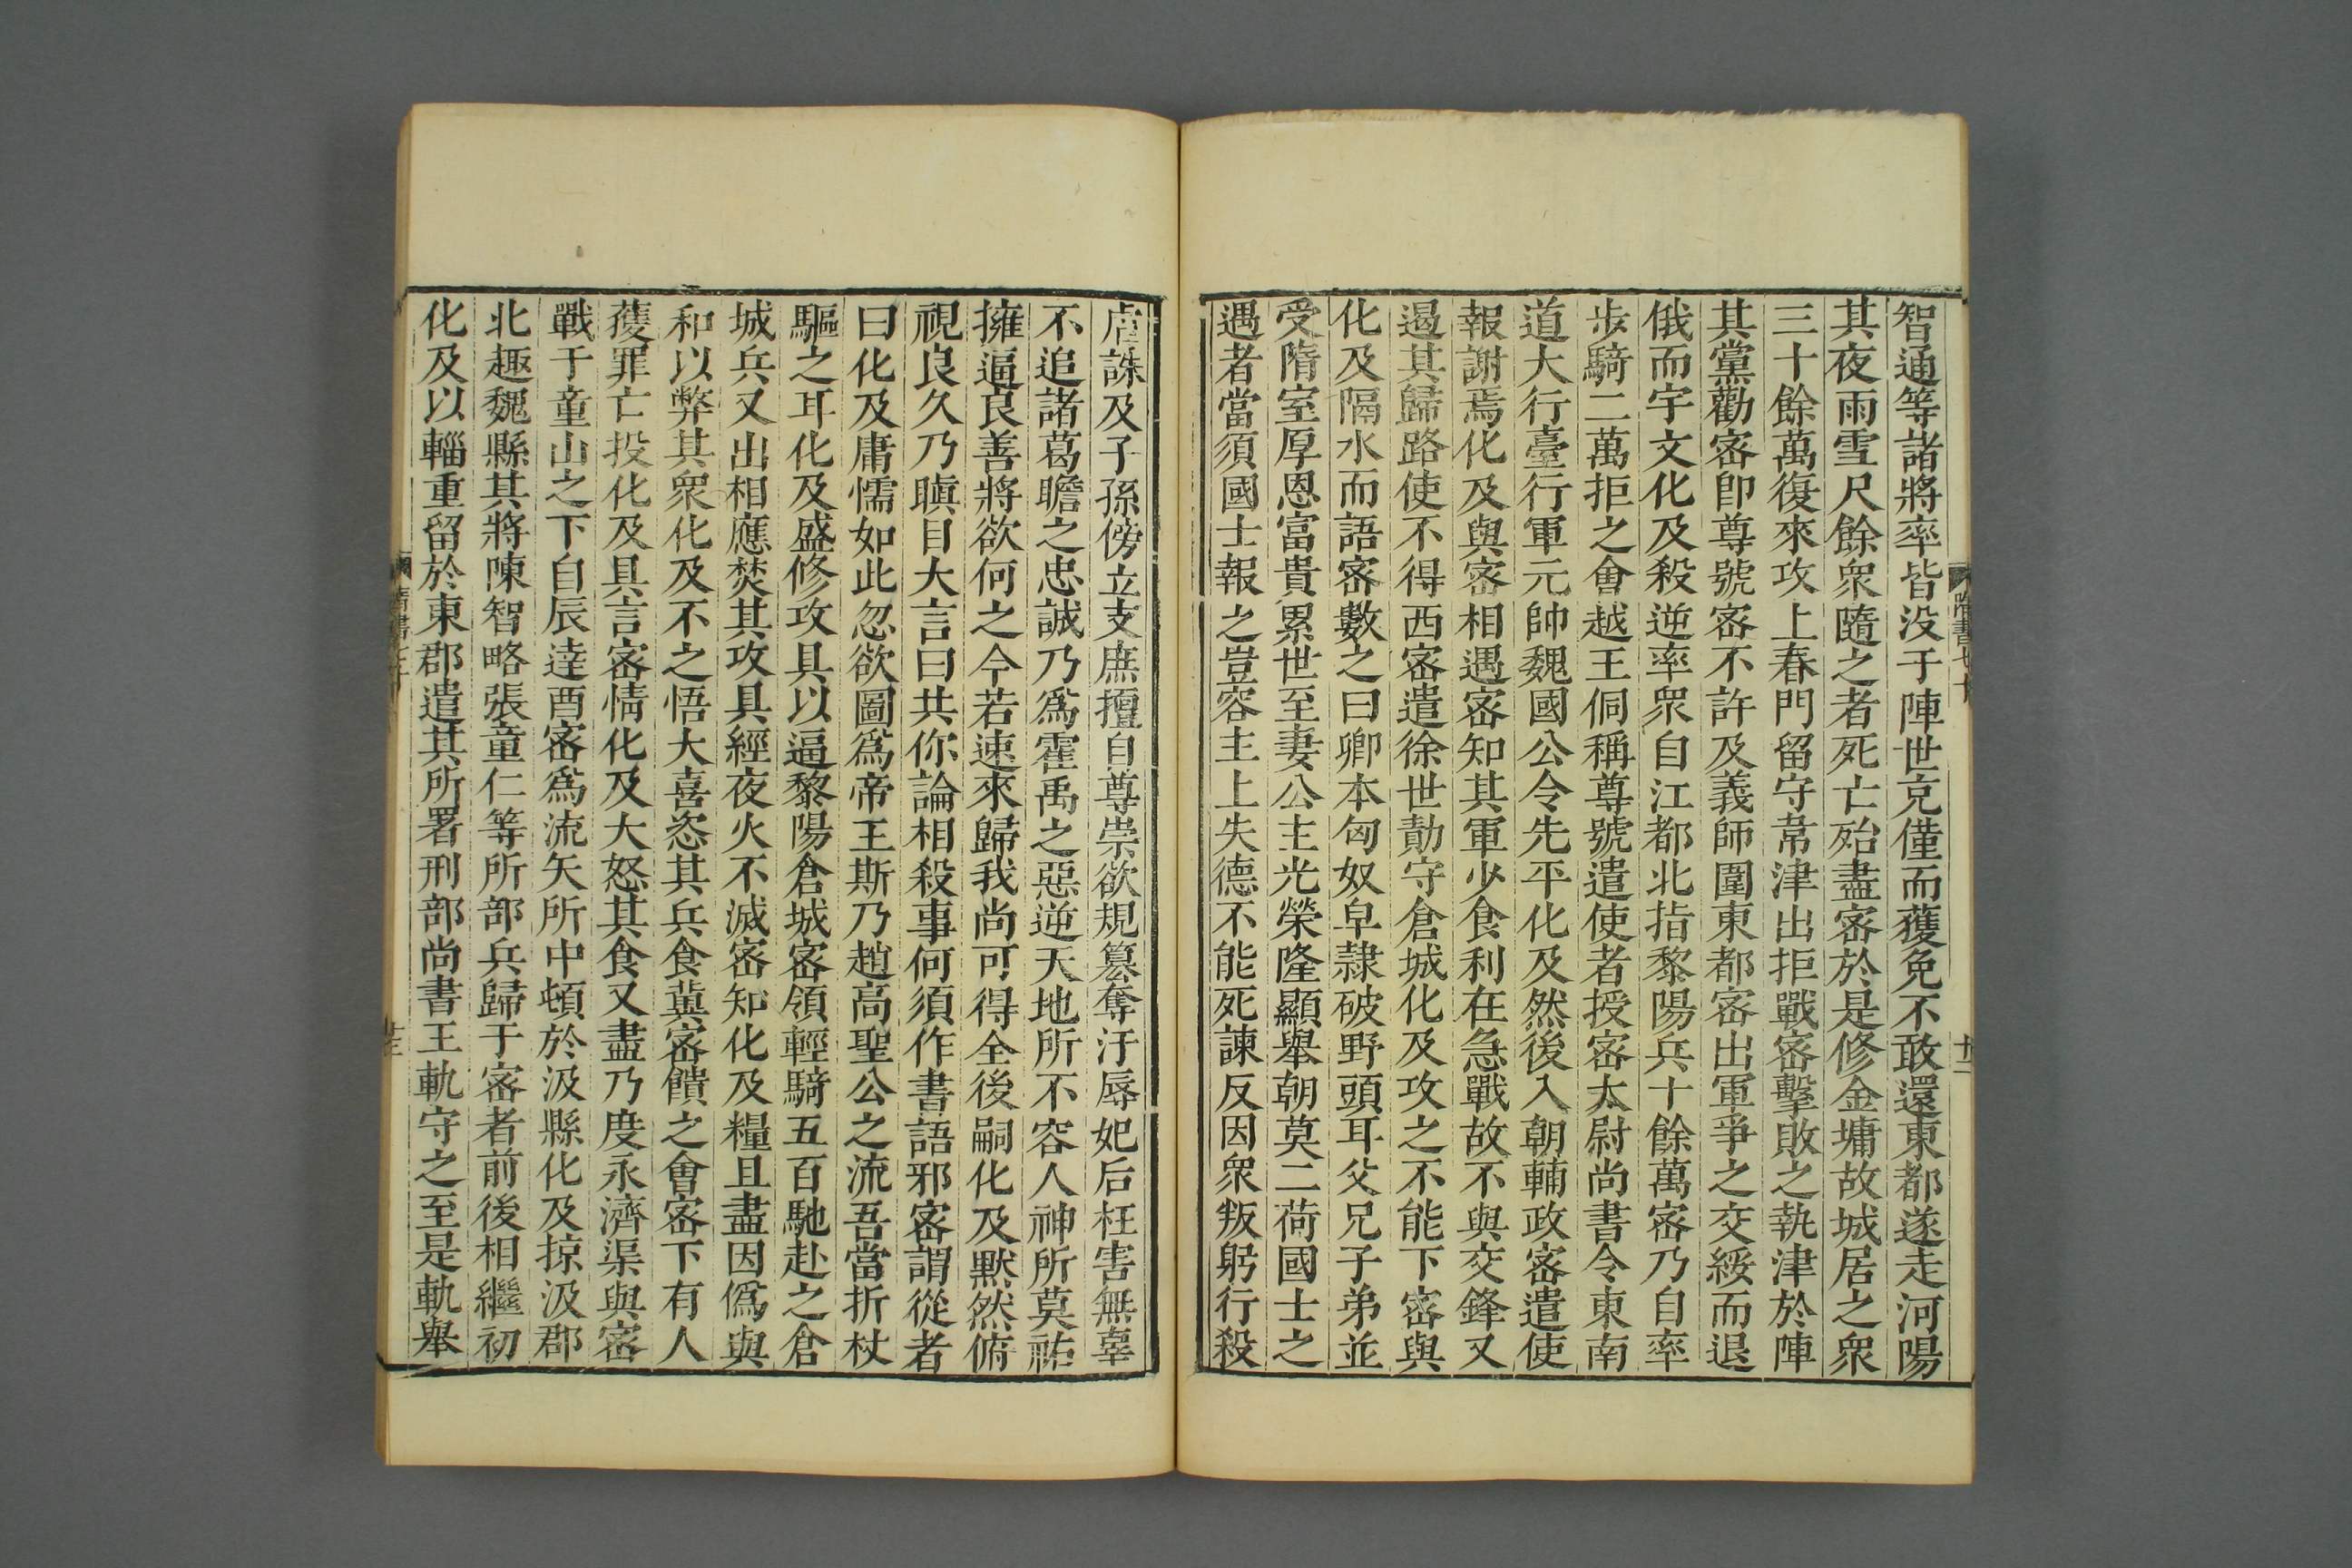 智通等諸將率皆没于陣世充僅而獲免不敢還東都遂走河陽
其夜雨雪尺餘衆隨之者死亡殆盡密於是修金墉故城居之衆
三十餘萬復來攻上春門留守韋津出拒戰密擊敗之執津於陣
其黨勸密卽尊號密不許及義師圍東都密出軍爭之交綏而退
俄而宇文化及殺逆率衆自江都北指黎陽兵十餘萬密乃自率
步騎二萬拒之會越王侗稱尊號遣使者授密太尉尚書令東南
道大行臺行軍元帥魏國公令先平化及然後入朝輔政密遣使
報謝焉化及與密相遇密知其軍少食利在急戰故不與交鋒又
遏其歸路使不得西密遣徐世勣守倉城化及攻之不能下密與
化及隔水而語密數之曰卿本匈奴皁隷破野頭耳父兄子弟並
受隋室厚恩富貴累世至妻公主光榮隆顯舉朝莫二荷國士之
遇者當須國士報之豈容主上失德不能死諫反因衆叛躬行殺
虐誅及子孫傍立支庶擅自尊崇欲規簒奪汙辱妃后枉害無辜
不追諸葛瞻之忠誠乃爲霍禹之惡逆天地所不容人神所莫祐
擁逼良善將欲何之今若速來歸我尚可得全後嗣化及默然俯
視良久乃瞋目大言曰共你論相殺事何須作書語邪密謂從者
曰化及庸懦如此忽欲圖爲帝王斯乃趙高聖公之流吾當折杖
驅之耳化及盛修攻具以逼黎陽倉城密領輕騎五百馳赴之倉
城兵又出相應焚其攻具經夜火不滅密知化及糧且盡因僞與
和以弊其衆化及不之悟大喜恣其兵食冀密饋之會密下有人
獲罪亡投化及具言密情化及大怒其食又盡乃度永濟渠與密
戰于童山之下自辰達酉密爲流矢所中頓於汲縣化及掠汲郡
北趣魏縣其將陳智略張童仁等所部兵歸于密者前後相繼初
化及以輜重留於東郡遣其所署刑部尚書王軌守之至是軌舉